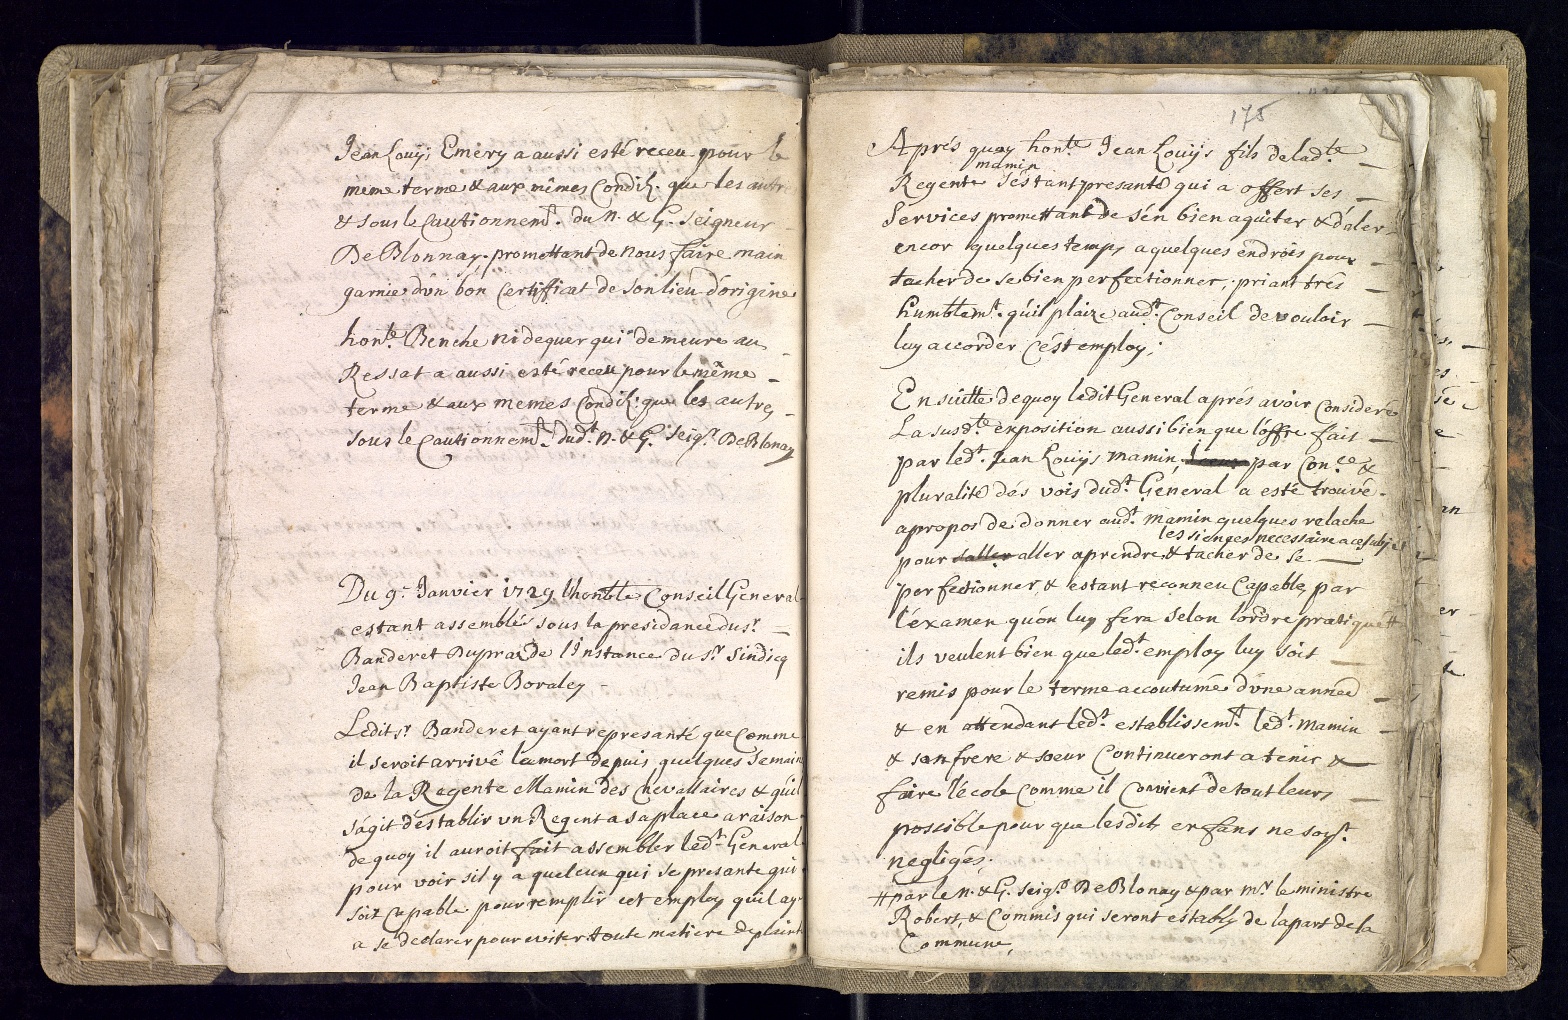 Jean Louÿs Emery a aussi esté receu pour le
meme terme & aux mêmes Condit. que les autre
& sous le Cautionnemt. du N. & G. Seigneur
De Blonnay. promettant de nous faire main
garnie d'vn bon Certifficat de son lieu d'origine
honte. Benche nideguer qui demeure au
Ressat a aussi esté receu pour le même
terme & aux memes Condit. que les autres
sous le Cautionnemt. dudt. N. & G. Seigr. De Blonay
Du 9e. Janvier 1729 l'honble Conseil General
estant assemblé sous la presidance du Sr.
Banderet Dupra de l'Instance du Sr. Sindicq
Jean Baptiste Boraley
Ledit Sr. Banderet ayant represanté que Comme
il seroit arrivé la mort depuis quelques Semain
de la Regente Mamin des Chevallaires & qu'il
s'agit d'establir vn Regent a sa place a raison
de quoy il auroit fait assembler ledt. General
pour voir s'il y a quelcun qui se presante qui
soit Capable pour remplir cet employ qu'il ay
a se declarer pour eviter toute matiere de plaint
175
Aprés quoy honte. Jean Louÿs fils de ladte
mamin
Regente s'estant presanté qui a offert ses
Services promettant de s'en bien aquiter & d'aler
encor quelques temps a quelques endrois pour
tacher de se bien perfectionner, priant très
humblemt. qu'il plaize audt. Conseil de vouloir
luy accorder C'est employ;
En suitte de quoy ledit General aprés avoir Consideré
La susdte exposition aussi bien que l'offre fait
par ledt. Jean Louÿs Mamin, par Conce &
pluralité dés vois dudt. General a esté trouvé
apropos de donner audt. Mamin quelques relache
les sienges necessaire a ce subjet
pour saller aller aprendre & tacher de se
perfectionner & estant reconneu Capable par
l'éxamen qu'on luy fera selon l'ordre pratiqué #
ils veulent bien que ledt. employ luy soit
remis pour le terme accoutumé d'vne année
& en attendant ledt. establissemt. ledt. Mamin
& son frere & soeur Continueront a tenir &
faire l'école Comme il Convient de tout leurs
possible pour que lesdits enfans ne soyt.
negligés.
# par le N. & G. Seigr. De Blonay & par Mr. le ministre
Robert, & Commis qui seront establÿ de la part de la
Commune,